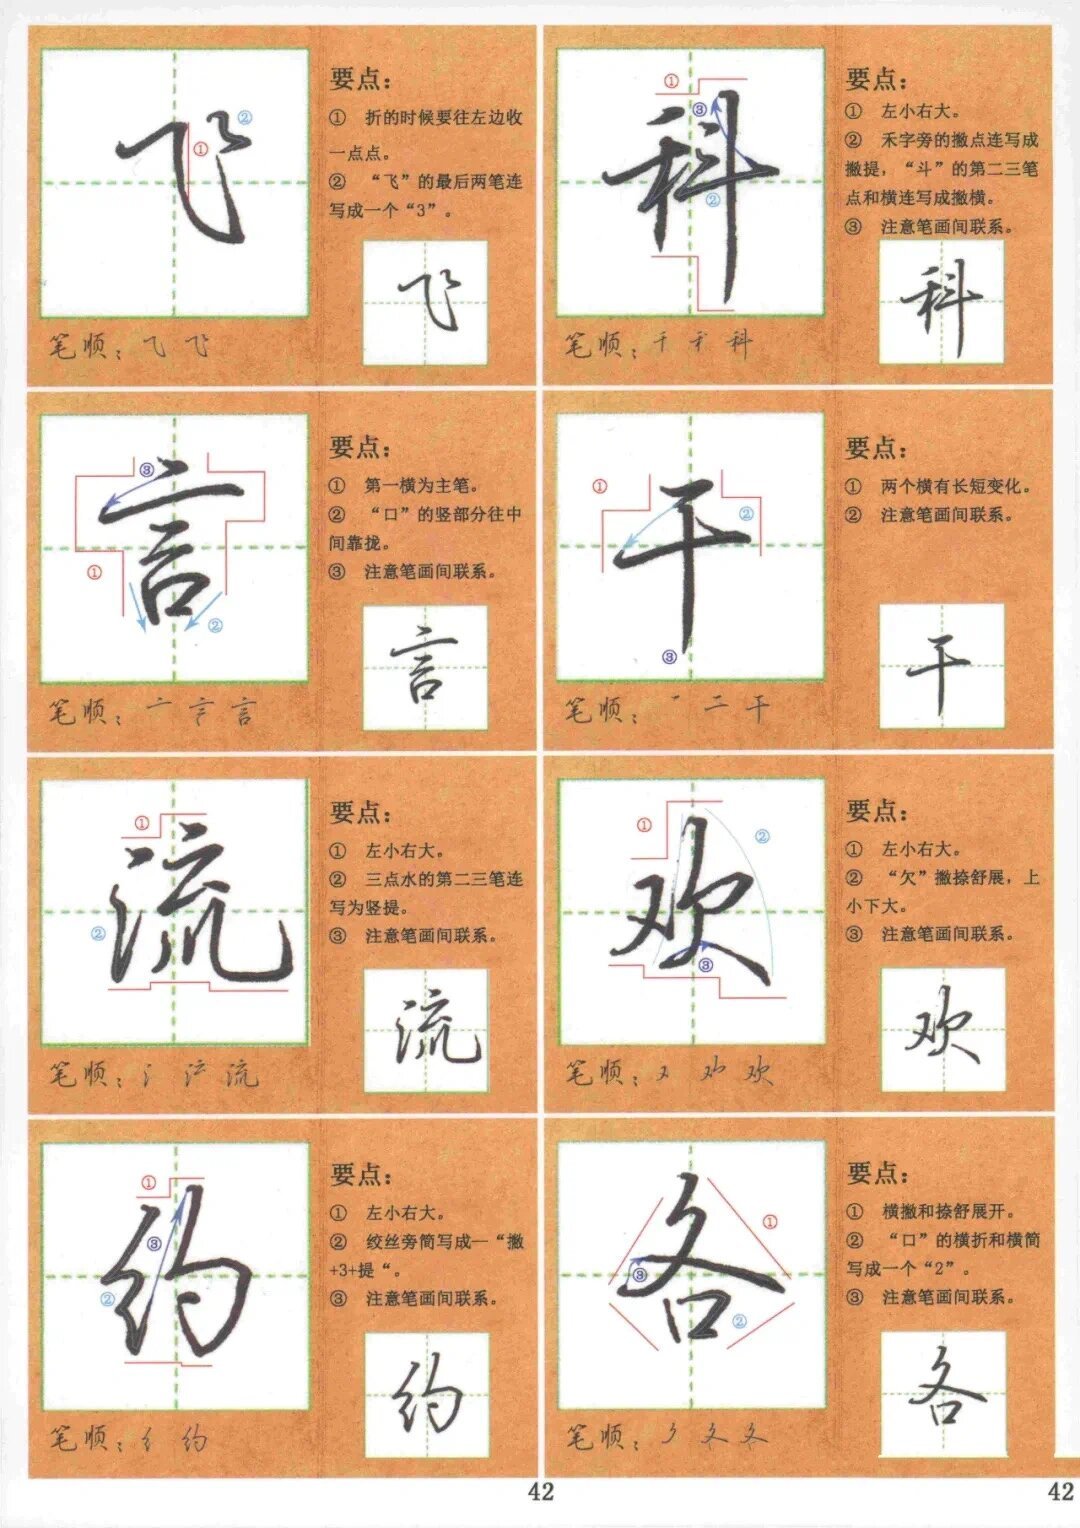 飞
①
②
要点：
① 折的时候要往左边收
一点点。
② “飞”的最后两笔连
写成一个“3”。
飞
笔顺：⺄ 飞
科
①
③
②
要点：
① 左小右大。
② 禾字旁的撇点连写成
撇提，“斗”的第二三笔
点和横连写成撇横。
③ 注意笔画间联系。
科
笔顺：千 禾 科
言
③
①
②
要点：
① 第一横为主笔。
② “口”的竖部分往中
间靠拢。
③ 注意笔画间联系。
言
笔顺：亠 言
干
①
②
③
要点：
① 两个横有长短变化。
② 注意笔画间联系。
干
笔顺：一 二 干
流
①
②
要点：
① 左小右大。
② 三点水的第二三笔连
写为竖提。
③ 注意笔画间联系。
流
笔顺：氵 流
欢
①
②
③
要点：
① 左小右大。
② “欠”撇捺舒展，上
小下大。
③ 注意笔画间联系。
欢
笔顺：又 欢 欢
约
①
③
②
要点：
① 左小右大。
② 绞丝旁简写成一“撇
+3+提“。
③ 注意笔画间联系。
约
笔顺：纟 约
各
①
③
②
要点：
① 横撇和捺舒展开。
② “口”的横折和横简
写成一个“2”。
③ 注意笔画间联系。
各
笔顺：夕 冬 冬
42
42